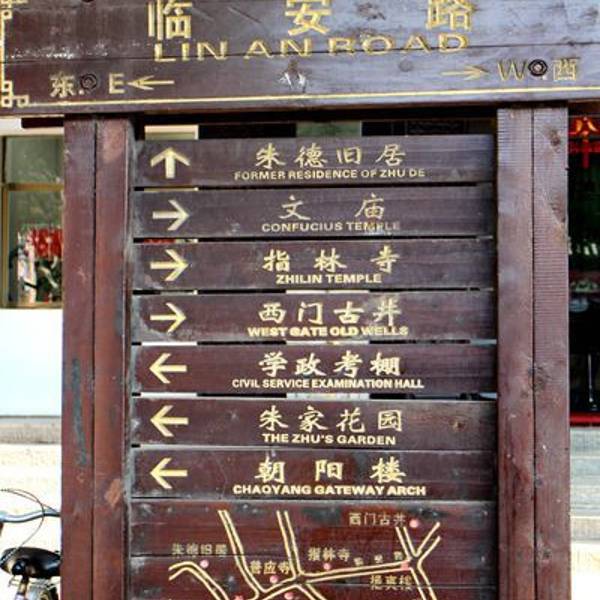 临安路
LIN AN ROAD
东 E W 西
朱德旧居
FORMER RESIDENCE OF ZHU DE
文庙
CONFUCIUS TEMPLE
指林寺
ZHILIN TEMPLE
西门古井
WEST GATE OLD WELLS
学政考棚
CIVIL SERVICE EXAMINATION HALL
朱家花园
THE ZHU'S GARDEN
朝阳楼
CHAOYANG GATEWAY ARCH
西门古井
朱德旧居
普应寺
指林寺